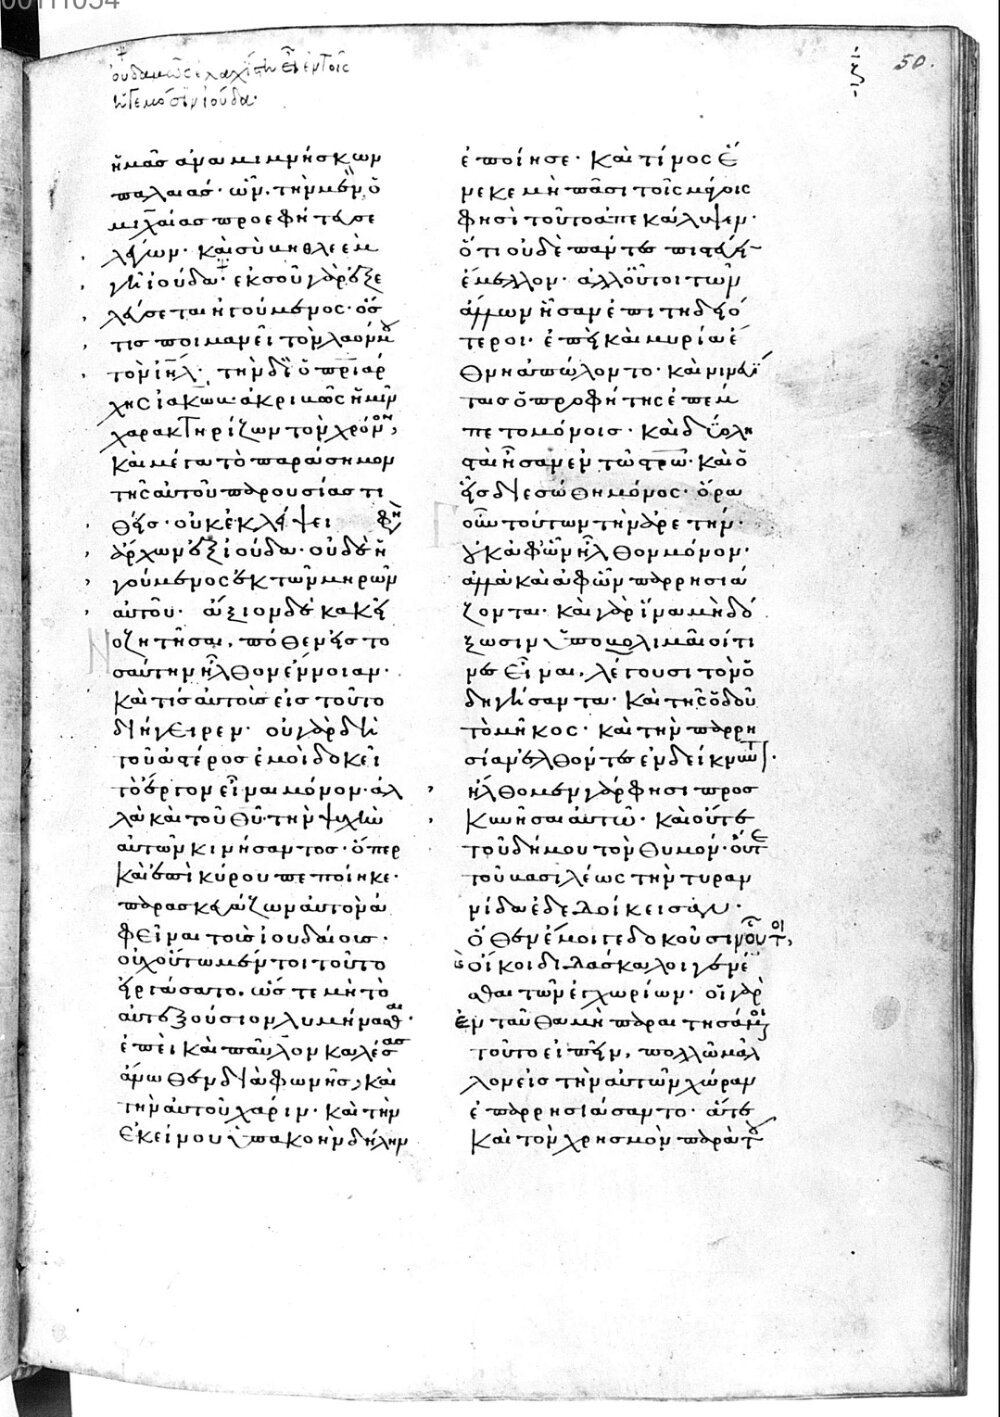 00111034
50.
ξ
οὐδαμῶς ἐλαχίστη εἶ ἐν τοῖς
ἡγεμόσιν ἰούδα·
ἡμᾶς ἀναμιμνήσκων
παλαιάς· ὧν, τὴν μὲν, ὁ
μιχαίας προεφήτευσε
λέγων· καὶ σὺ βηθλεὲμ
γῆ ἰούδα· ἐκ σοῦ γὰρ ἐξε
λεύσεται ἡγούμενος· ὅσ
τις ποιμανεῖ τὸν λαόν μου
τὸν ἰηλ· τὴν δὲ ὁ πριάρ
χης ἰακὼβ ἀκριβῶς ἡμῖν
χαρακτηρίζων τὸν χρόνον,
καὶ μέγα τὸ παράσημον
τῆς αὐτοῦ παρουσίας τι
θείς· οὐκ ἐκλείψει φη
ἄρχων ἐξ ἰούδα· οὐδὲ ἡ
γούμενος ἐκ τῶν μηρῶν
αὐτοῦ· ἄξιον δὲ κακεῖ
ο ζητῆσαι, πόθεν εἰς το
σαύτην ἦλθον ἔννοιαν·
καὶ τίς αὐτοὺς εἰς τοῦτο
διήγειρεν· οὐ γὰρ δὴ
τοῦ ἀστέρος ἐμοὶ δοκεῖ
τὸ ἔργον εἶναι μόνον· ἀλ
λὰ καὶ τοῦ θυ· τὴν ψυχὴν
αὐτῶν κινήσαντος· ὅπερ
καὶ ἐπὶ κύρου πεποίηκε·
παρασκευάζων αὐτὸν ἀ
φεῖναι τοὺς ἰουδαίους·
οὐχ οὕτω μέντοι τοῦτο
εἰργάσατο. ὥστε μὴ τὸ
αὐτεξούσιον λυμήνασθαι·
ἐπεὶ καὶ παῦλον καλέσας
ἄνωθεν διὰ φωνῆς, καὶ
τὴν αὐτοῦ χάριν· καὶ τὴν
ἐκείνου ὑπακοὴν δήλην
ἐποίησε· καὶ τίνος ἕ
νεκε μὴ πᾶσι τοῖς μάγοις
φησὶ τοῦτο ἀπεκάλυψεν·
ὅτι οὐδὲ πάντες πιστεύειν
ἔμελλον· ἀλλ' οὗτοι τῶν
ἄλλων ἦσαν ἐπιτηδειό
τεροι· ἐπεὶ καὶ μυρία ἔ
θνη ἀπώλοντο· καὶ νινευί
ταις ὁ προφήτης ἐπέμ
πετο μόνοις· καὶ δύο λη
σταὶ ἦσαν ἐν τῷ στρω· καὶ ὁ
εἷς διεσώθη μόνος· ὅρα
οὖν τούτων τὴν ἀρετήν·
οὐκ ἀφ' ὧν ἦλθον μόνον·
ἀλλὰ καὶ ἀφ' ὧν παρρησιά
ζονται· καὶ γὰρ ἵνα μὴ δό
ξωσιν ὑποβολιμαῖοί τι
νες εἶναι, λέγουσι τὸν ὁ
δηγήσαντα· καὶ τῆς ὁδοῦ
τὸ μῆκος· καὶ τὴν παρρη
σίαν ἐλθόντες ἐνδείκνυνται·
ἤλθομεν γάρ φησι προσ
κυνῆσαι αὐτῷ· καὶ οὔτε
τοῦ δήμου τὸν θυμόν· οὔτε
τοῦ βασιλέως τὴν τυραν
νίδα ἐδεδοίκεισαν·
ὅθεν ἔμοιγε δοκοῦσιν οὗτοι,
ὡς οἴκοι διδάσκαλοι γενέ
σθαι τῶν ἐγχωρίων· οἱ γὰρ
ἐνταῦθα μὴ παραιτησάμενοι
τοῦτο εἰπεῖν, πολλῷ μᾶλ
λον εἰς τὴν αὐτῶν χώραν
ἐπαρρησιάσαντο· ἅτε
καὶ τὸν χρησμὸν παρὰ τοῦ